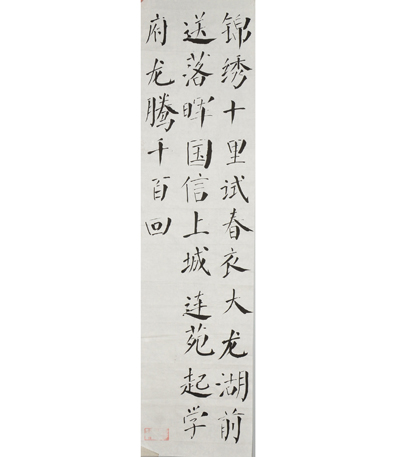 锦绣十里试春衣大龙湖前
送落晖国信上城连苑起学
府龙腾千百回